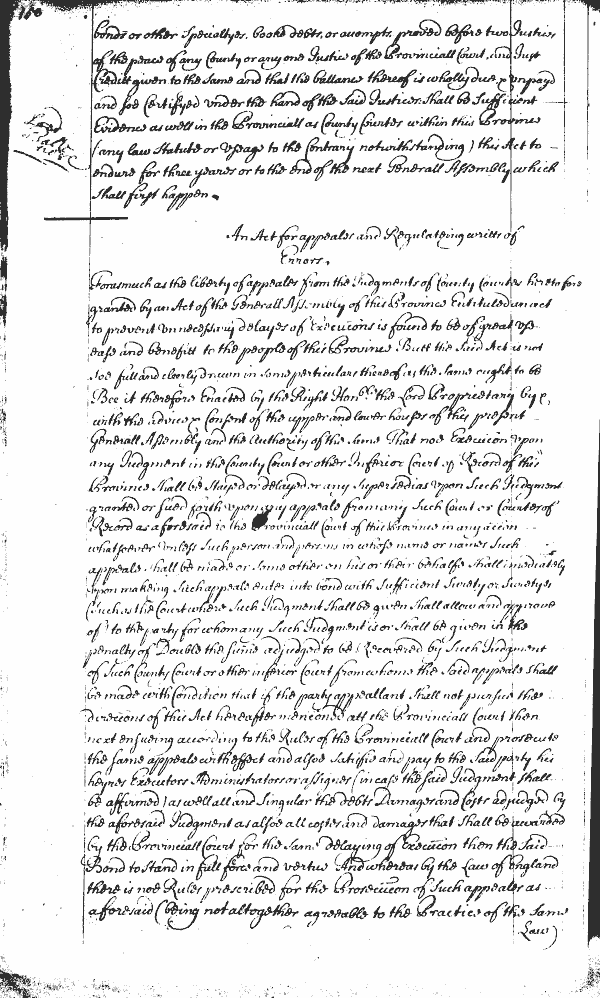 180
bonds or other Specialtyes, booke debts, or accompts, proved before two Justices
of the peace of any County or any one Justice of the Provinciall Court, and Just
Creditt given to the same and that the ballance thereof is wholly due & unpayd
and soe Certifyed under the hand of the said Justices shall be Sufficient
Evidence as well in the Provinciall as County Courtes within this Province
(any law Statute or Usage to the Contrary notwithstanding) this Act to
endure for three yeares or to the end of the next Generall Assembly which
shall first happen.
An Act for appeales and Regulateing writts of
Errors.
Forasmuch as the liberty of appeales from the Judgments of County Courtes heretofore
granted by an Act of the Generall Assembly of this Province Entituled an act
to prevent unnecessary delayes of Execucions is found to be of great use
ease and benefitt to the people of this Province Butt the said Act is not
soe full and clearly drawn in some particulars thereof as the same ought to be
Bee it therefore Enacted by the Right Honble the Lord Proprietary by &
with the advice & Consent of the upper and lower houses of this present
Generall Assembly and the Authority of the Same That noe Execucion upon
any Judgment in the County Court or other Inferior Court of Record of this
Province shall be Stayed or delayed or any Supersedias upon Such Judgment
granted or sued forth upon any appeale from any Such Court or Courtes of
Record as aforesaid to the Provinciall Court of this Province in any accon
whatsoever unless Such person and persons in whose name or names Such
appeale shall be made or some other on his or their behalfe shall imediately
upon makeing Such appeale enter into bond with Sufficient Surety or Suretyes
(such as the Court where Such Judgment shall be given shall allow and approve
of) to the party for whom any Such Judgment is or shall be given in the
penalty of Double the sume adjudged to be Recovered by Such Judgment
of Such County Court or other inferior Court from whome the said appeale shall
be made with Condition that if the party appeallant shall not pursue the
direccons of this Act hereafter menconed att the Provinciall Court then
next ensueing according to the Rules of the Provinciall Court and prosecute
the same appeale with effect and alsoe Satisfie and pay to the Said party his
heyres Executors Administrators or assignes (in case the said Judgment shall
be affirmed) as well all and Singular the debts Damages and Costs adjudged by
the aforesaid Judgment as alsoe all costes and damages that shall be awarded
by the Provinciall Court for the same delaying of Execucion then the said
Bond to Stand in full force and vertue And whereas by the Law of England
there is noe Rules prescribed for the Prosecucon of Such appeales as
aforesaid (being not altogether agreeable to the Practice of the same
Law)